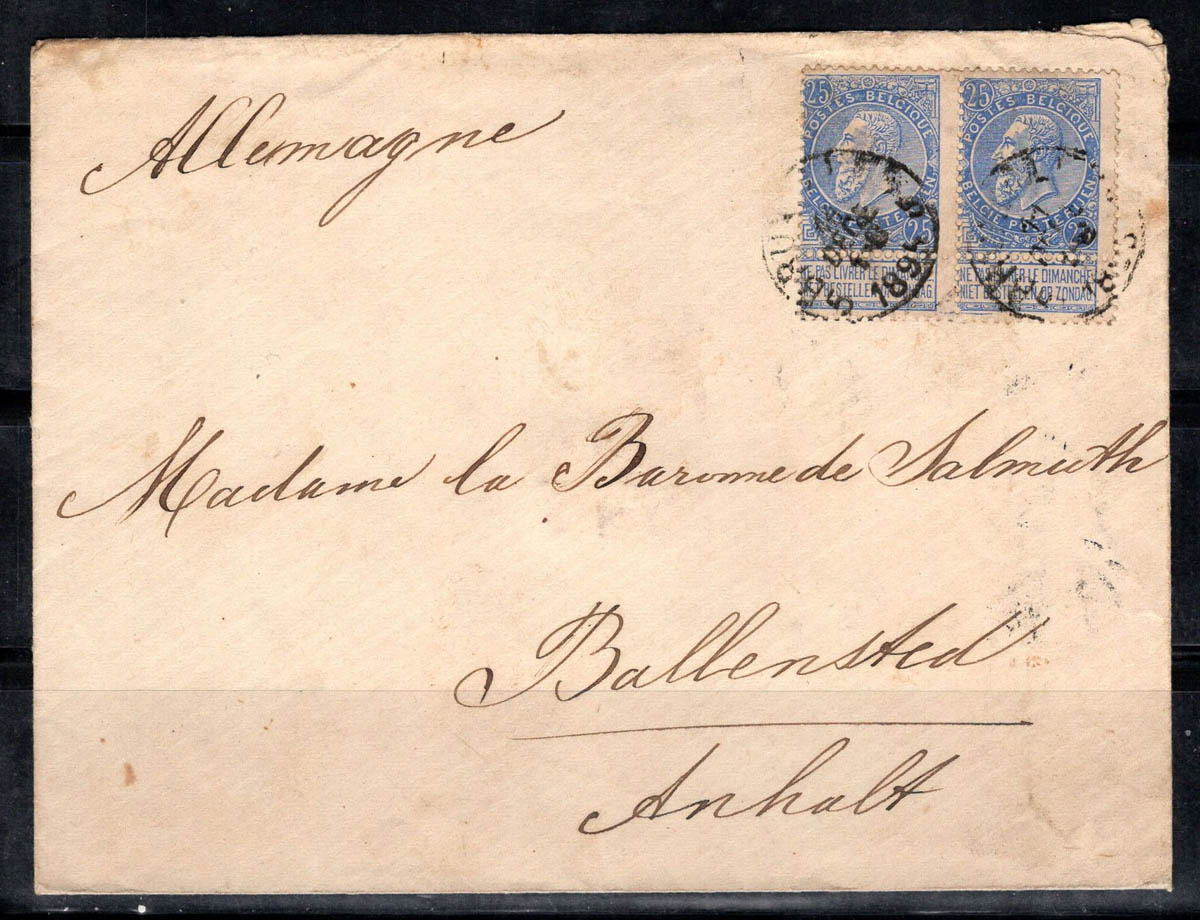 Allemagne
25
POSTES BELGIQUE
BELGIE POSTERIJEN
25
NE PAS LIVRER LE DIMANCHE
NIET BESTELLEN OP ZONDAG
25
POSTES BELGIQUE
BELGIE POSTERIJEN
25
NE PAS LIVRER LE DIMANCHE
NIET BESTELLEN OP ZONDAG
Madame la Baronne de Salmuth
Ballensted
Anhalt